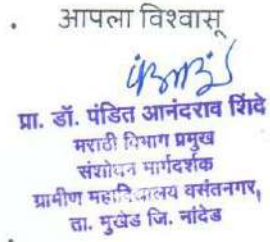 आपला विश्वासू
प्रा. डॉ. पंडित आनंदराव शिंदे
मराठी विभाग प्रमुख
संशोधन मार्गदर्शक
ग्रामीण महाविद्यालय वसंतनगर,
ता. मुखेड जि. नांदेड